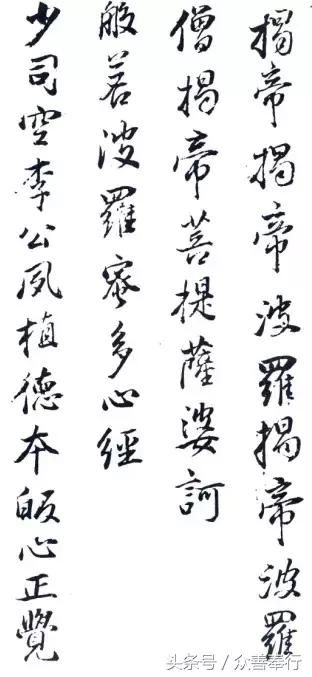 揭帝揭帝波羅揭帝波羅
僧揭帝菩提薩婆訶
般若波羅蜜多心經
少司空李公夙植德本皈心正覺
头条号／众善奉行